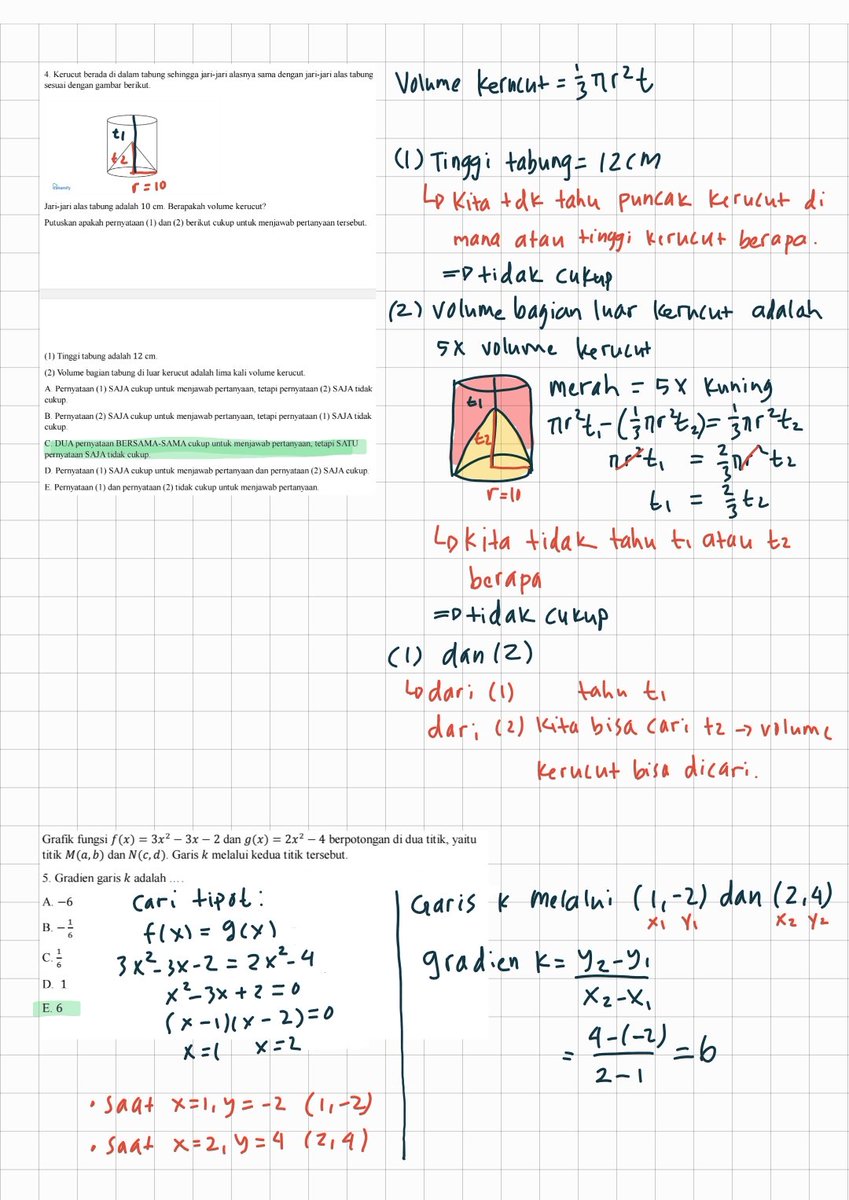 4. Kerucut berada di dalam tabung sehingga jari-jari alasnya sama dengan jari-jari alas tabung
sesuai dengan gambar berikut.
t₁
t2
r = 10
Jari-jari alas tabung adalah 10 cm. Berapakah volume kerucut?
Putuskan apakah pernyataan (1) dan (2) berikut cukup untuk menjawab pertanyaan tersebut.
(1) Tinggi tabung adalah 12 cm.
(2) Volume bagian tabung di luar kerucut adalah lima kali volume kerucut.
A. Pernyataan (1) SAJA cukup untuk menjawab pertanyaan, tetapi pernyataan (2) SAJA tidak
cukup.
B. Pernyataan (2) SAJA cukup untuk menjawab pertanyaan, tetapi pernyataan (1) SAJA tidak
cukup.
C. DUA pernyataan BERSAMA-SAMA cukup untuk menjawab pertanyaan, tetapi SATU
pernyataan SAJA tidak cukup.
D. Pernyataan (1) SAJA cukup untuk menjawab pertanyaan dan pernyataan (2) SAJA cukup.
E. Pernyataan (1) dan pernyataan (2) tidak cukup untuk menjawab pertanyaan.
Volume kerucut = 1/3 πr²t
(1) Tinggi tabung = 12 CM
↳ Kita tdk tahu puncak kerucut di
mana atau tinggi kerucut berapa.
=> tidak cukup
(2) Volume bagian luar kerucut adalah
5X volume kerucut
t₁
t2
r=10
merah = 5X kuning
πr²t₁ - (1/3 πr²t₂) = 1/3 πr²t₂
πr²t₁ = 2/3 πr²t₂
t₁ = 2/3 t₂
↳ Kita tidak tahu t₁ atau t₂
berapa
=> tidak cukup
(1) dan (2)
↳ dari (1) tahu t₁
dari (2) Kita bisa cari t₂ → volume
kerucut bisa dicari.
Grafik fungsi f(x) = 3x² − 3x − 2 dan g(x) = 2x² − 4 berpotongan di dua titik, yaitu
titik M(a, b) dan N(c, d). Garis k melalui kedua titik tersebut.
5. Gradien garis k adalah ....
A. −6
B. −1/6
C. 1/6
D. 1
E. 6
Cari tipot :
f(x) = g(x)
3x²-3x-2 = 2x²-4
x²-3x+2 = 0
(x-1)(x-2)=0
x=1 x=2
• Saat x=1, y=-2 (1,-2)
• Saat x=2, y=4 (2,4)
Garis k melalui (1,-2) dan (2,4)
X₁ Y₁ X₂ Y₂
gradien k = y₂-y₁ / x₂-x₁
= 4-(-2) / 2-1 = 6